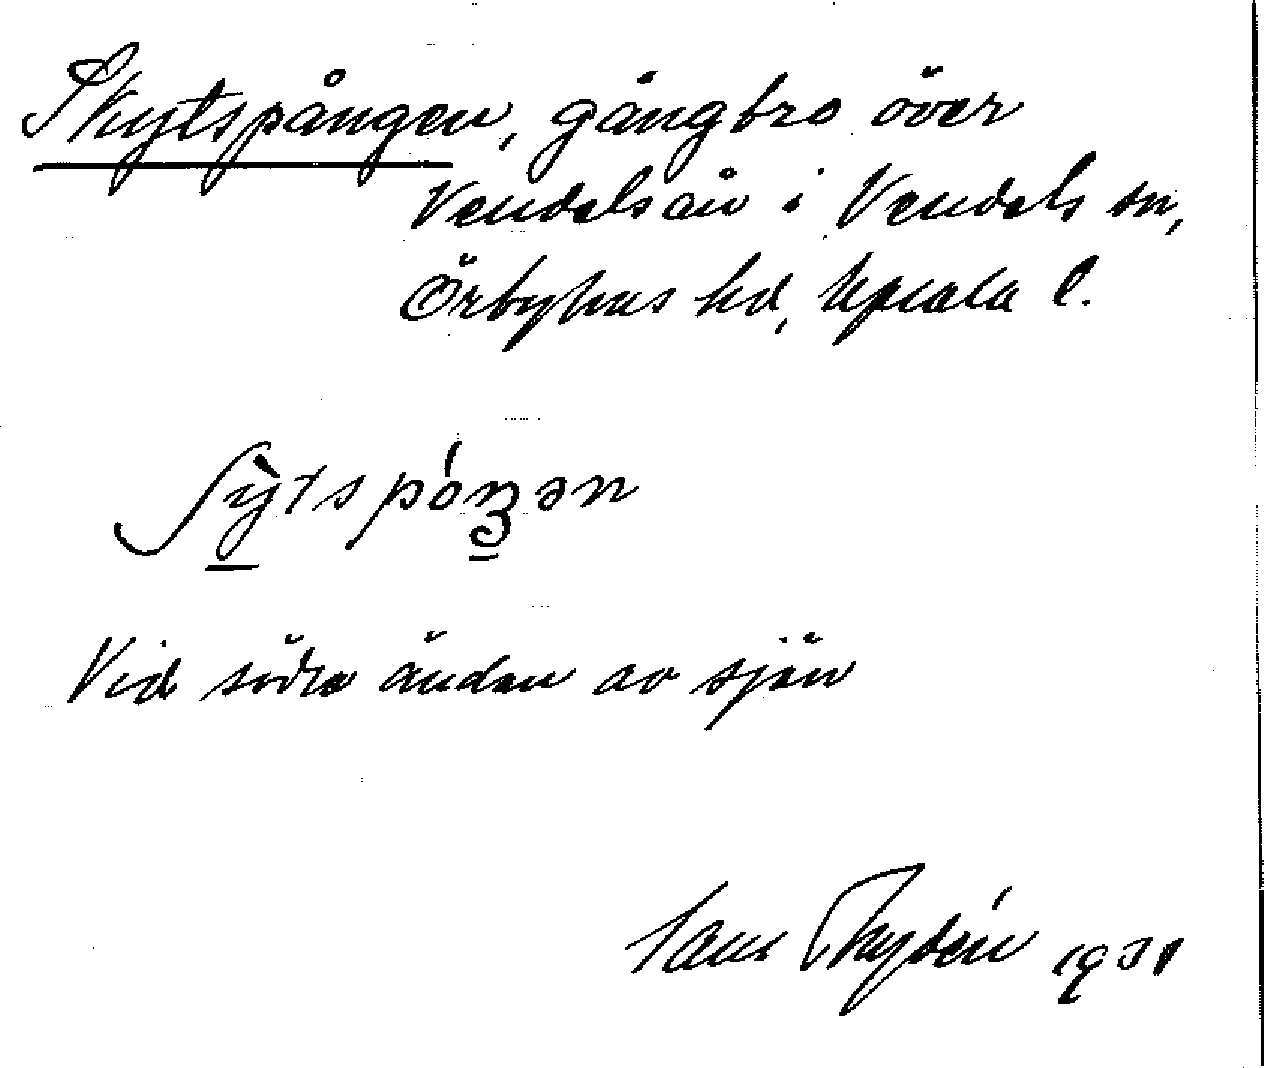 Skytspången, gångbro över
Vendelsån i Vendels sn,
Örbyhus hd, Upsala l.
ʃỳtspóŋən
Vid södra änden av sjön
Hans Thydén 1931